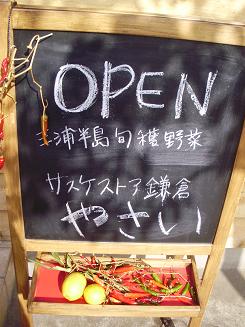 OPEN
三浦半島旬穫野菜
サスケストア鎌倉
やさい